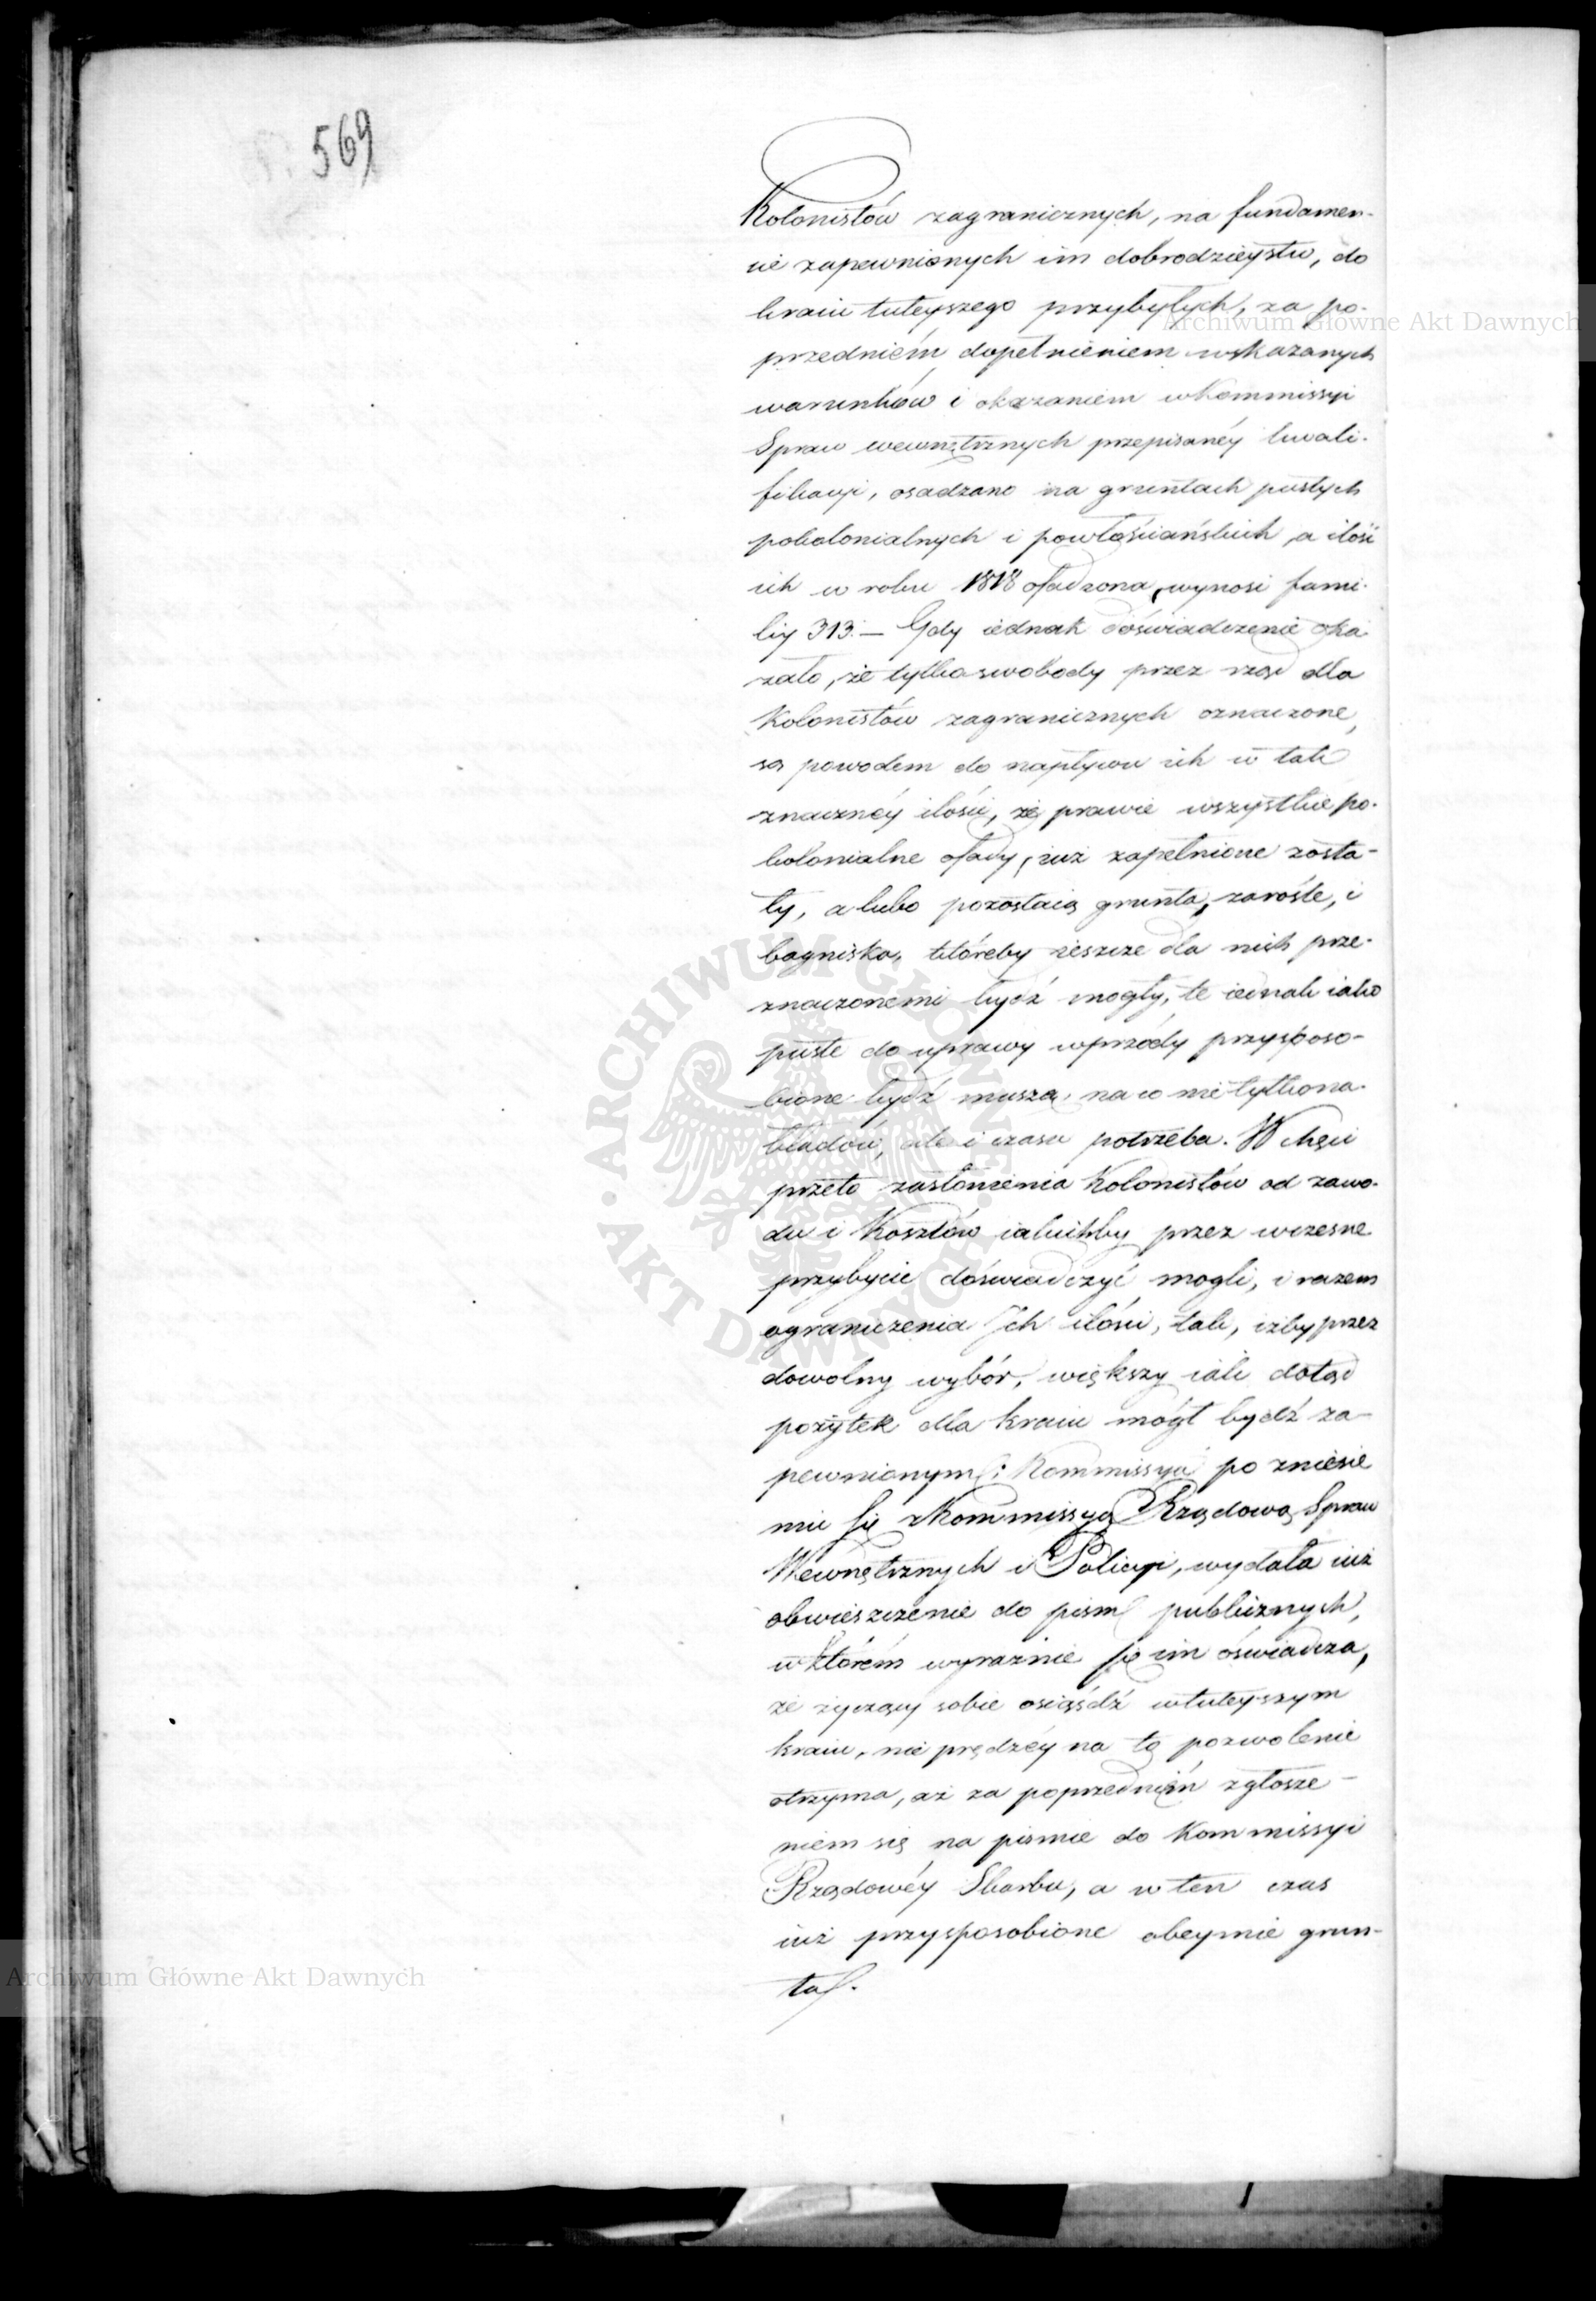 569
Kolonistów zagranicznych, na fundamen-
cie zapewnionych im dobrodzieystw, do
kraiu tuteyszego przybyłych, za po-
przedniém dopełnieniem wskazanych
warunków i okazaniem w Kommissyi
Spraw wewnętrznych przepisanéy kwali-
fikacyi, osadzano na gruntach pustych
pokolonialnych i powłościańskich, a ilość
ich w roku 1818 osadzona, wynosi fami-
liy 313. — Gdy iednak doświadczenie oka-
zało, że tylko swobody przez rząd dla
Kolonistów zagranicznych oznaczone,
są powodem do napływu ich w tak
znacznéy ilości, że prawie wszystkie po-
kolonialne osady, iuż zapełnione zosta-
ły, a lubo pozostaią grunta, zarośle, i
bagniska, któreby ieszcze dla nich prze-
znaczonemi bydź mogły, te iednak iako
puste do uprawy wprzódy przysposo-
bione bydź muszą, na co nie tylko na-
kładów, ale i czasu potrzeba. W chęci
przeto zasłonienia Kolonistów od zawo-
du i Kosztów iakichby przez wczesne
przybycie doświadczyć mogli, i razem
ograniczenia Ich ilości, tak, iżby przez
dowolny wybór, większy iak dotąd
pożytek dla kraiu mógł bydź za-
pewnionym; Kommissya po zniesie
niu się z Kommissyą Rządową Spraw
Wewnętrznych i Policyi, wydała iuż
obwieszczenie do pism publicznych,
w którém wyraźnie się im oświadcza,
że życzący sobie osiąśdź w tuteyszym
kraiu, nie prędzéy na to pozwolenie
otrzyma, aż za poprzedniém zgłosze-
niem się na piśmie do Kommissyi
Rządowéy Skarbu, a w ten czas
iuż przysposobione obeymie grun-
ta.
Archiwum Główne Akt Dawnych
Archiwum Główne Akt Dawnych
ARCHIWUM GŁÓWNE AKT DAWNYCH